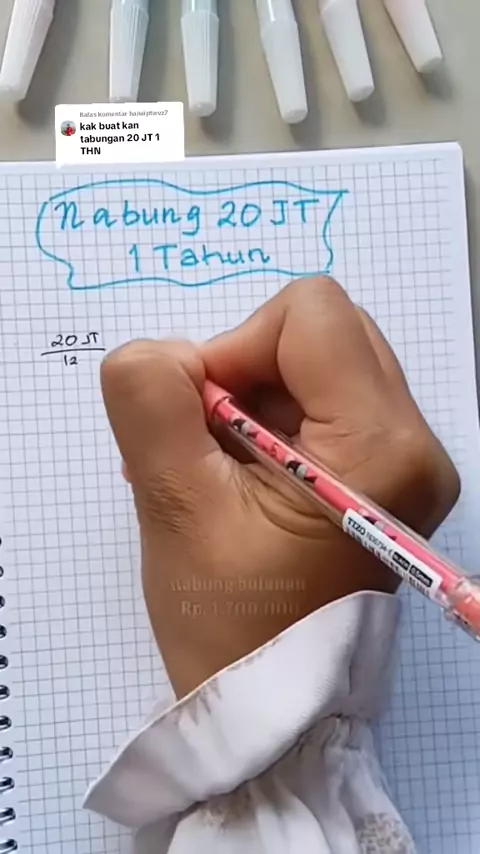 Balas komentar
kak buat kan
tabungan 20 JT 1
THN
Nabung 20 JT
1 Tahun
20 JT
12
nabung bulanan
Rp. 1.700.000
TIZO